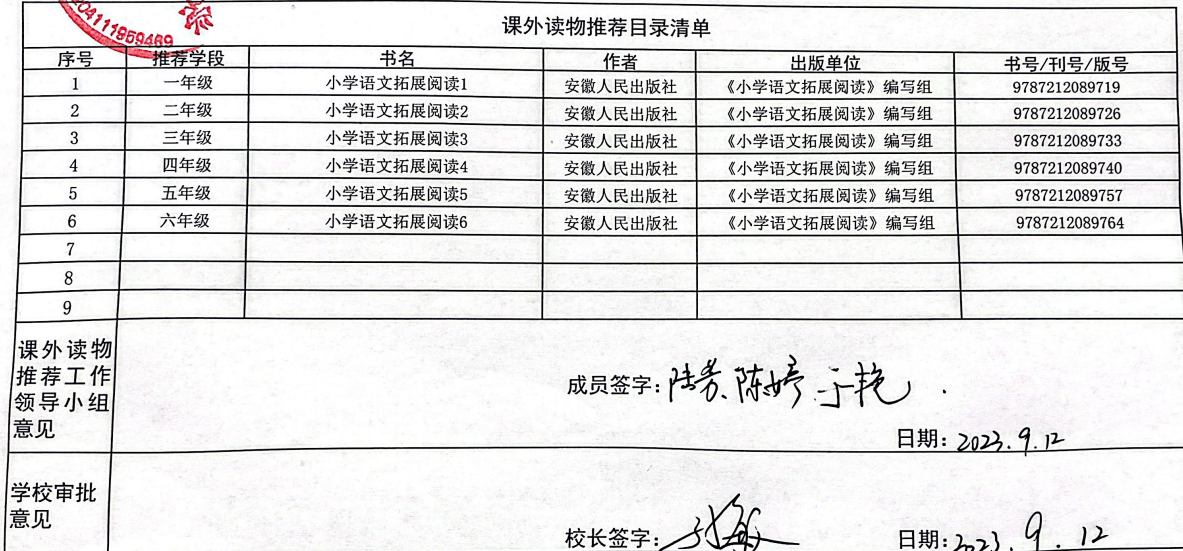 课外读物推荐目录清单
序号 推荐学段 书名 作者 出版单位 书号/刊号/版号
1 一年级 小学语文拓展阅读1 安徽人民出版社 《小学语文拓展阅读》编写组 9787212089719
2 二年级 小学语文拓展阅读2 安徽人民出版社 《小学语文拓展阅读》编写组 9787212089726
3 三年级 小学语文拓展阅读3 安徽人民出版社 《小学语文拓展阅读》编写组 9787212089733
4 四年级 小学语文拓展阅读4 安徽人民出版社 《小学语文拓展阅读》编写组 9787212089740
5 五年级 小学语文拓展阅读5 安徽人民出版社 《小学语文拓展阅读》编写组 9787212089757
6 六年级 小学语文拓展阅读6 安徽人民出版社 《小学语文拓展阅读》编写组 9787212089764
7
8
9
课外读物
推荐工作
领导小组
意见
成员签字：陈婷 于艳
日期：2023.9.12
学校审批
意见
校长签字：
日期：2023.9.12